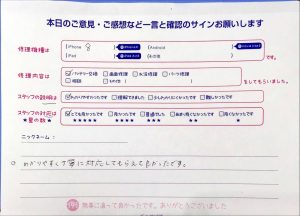 本日のご意見・ご感想など一言と確認のサインお願いします
修理機種は
iPhone 8
Android
iPad
その他
修理内容は
バッテリー交換 画面修理 水没修理 パーツ修理
その他
をしてもらいました。
スタッフの説明は
わかりやすかったです 理解できました 少しわかりにくかったです 難しかったです
スタッフの対応は
★星の数★
とても良かったです 良かったです 普通でした あまり良くなかったです 良くなかったです
★★★★★ ★★★★ ★★★ ★★ ★
ニックネーム:
わかりやすく丁寧に対応してもらえて良かったです。
無事に直って良かったです。ありがとうございました